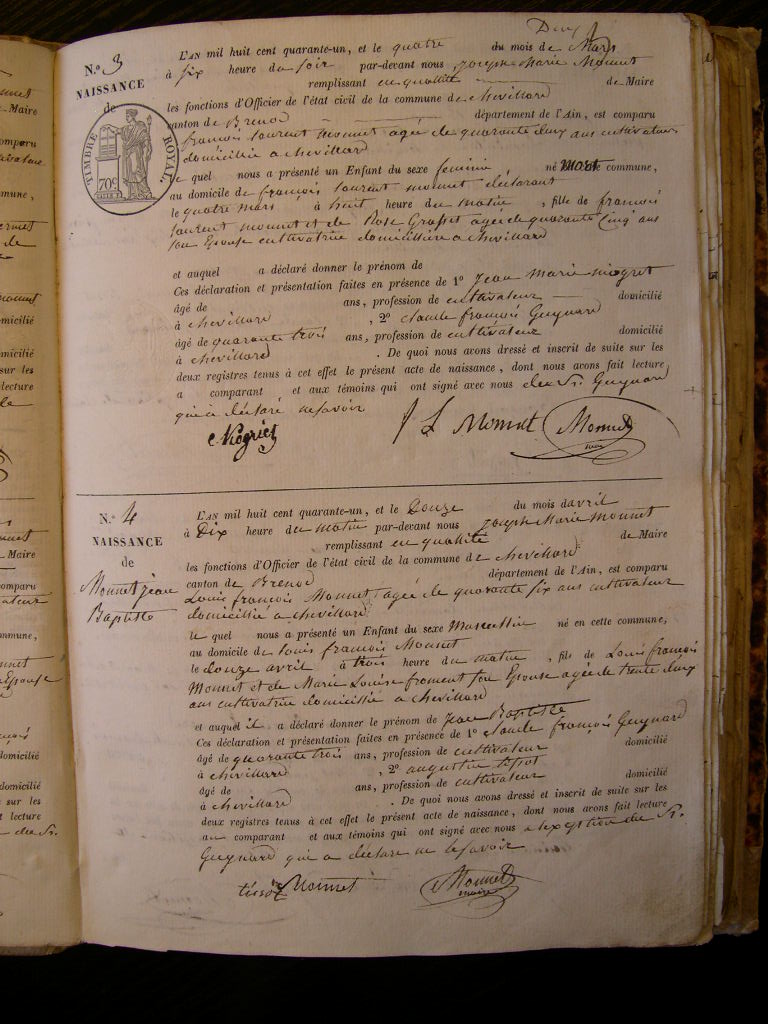 Deux
N.° 3
NAISSANCE
de
TIMBRE ROYAL
70c
L'AN mil huit cent quarante-un, et le quatre du mois de Mars
à six heure du soir par-devant nous joseph Marie Monnet
remplissant en quallité de Maire
les fonctions d'Officier de l'état civil de la commune de chevillard
canton de Brenod département de l'Ain, est comparu
françois laurent monnet agée de quarante deux ans cultivateur
domicillié a chevillard
le quel nous a présenté un Enfant du sexe feminin né mort commune,
au domicile de françois laurent monnet déclarant
le quatre mars à huit heure du matin , fille de françois
laurent monnet et de Rose Grosset agée de quarante cinq ans
son Epouse cultivatrice domicillière a chevillard
et auquel a déclaré donner le prénom de
Ces déclaration et présentation faites en présence de 1° Jean marie niogret
âgé de ans, profession de cultivateur domicilié
à chevillard , 2° claude françois Guynard
âgé de quarante trois ans, profession de cultivateur domicilié
à chevillard . De quoi nous avons dressé et inscrit de suite sur les
deux registres tenus à cet effet le présent acte de naissance, dont nous avons fait lecture
a comparant et aux témoins qui ont signé avec nous Guynard
qui a déclaré ne savoir
Niogret f L Monnet Monnet
maire
N.° 4
NAISSANCE
de
Monnet jean
Baptiste
L'AN mil huit cent quarante-un, et le Douze du mois davril
à Dix heure du matin par-devant nous joseph Marie Monnet
remplissant en quallité de Maire
les fonctions d'Officier de l'état civil de la commune de chevillard
canton de Brenod département de l'Ain, est comparu
Louis françois Monnet agée de quarante six ans cultivateur
domicillié a chevillard
le quel nous a présenté un Enfant du sexe Masculin né en cette commune,
au domicile de louis françois Monnet
le douze avril à trois heure du matin , fils de Louis françois
Monnet et de Marie Louise froment son Epouse agée de trente deux
ans cultivatrice domicillié a chevillard
et auquel il a déclaré donner le prénom de Jean Baptiste
Ces déclaration et présentation faites en présence de 1° claude françois Guynard
âgé de quarante trois ans, profession de cultivateur domicilié
à chevillard , 2° augustin tissot
âgé de ans, profession de cultivateur domicilié
à chevillard . De quoi nous avons dressé et inscrit de suite sur les
deux registres tenus à cet effet le présent acte de naissance, dont nous avons fait lecture
au comparant et aux témoins qui ont signé avec nous a exception de Sr.
Guynard qui a déclaré ne le savoir
tissot Monnet Monnet
maire